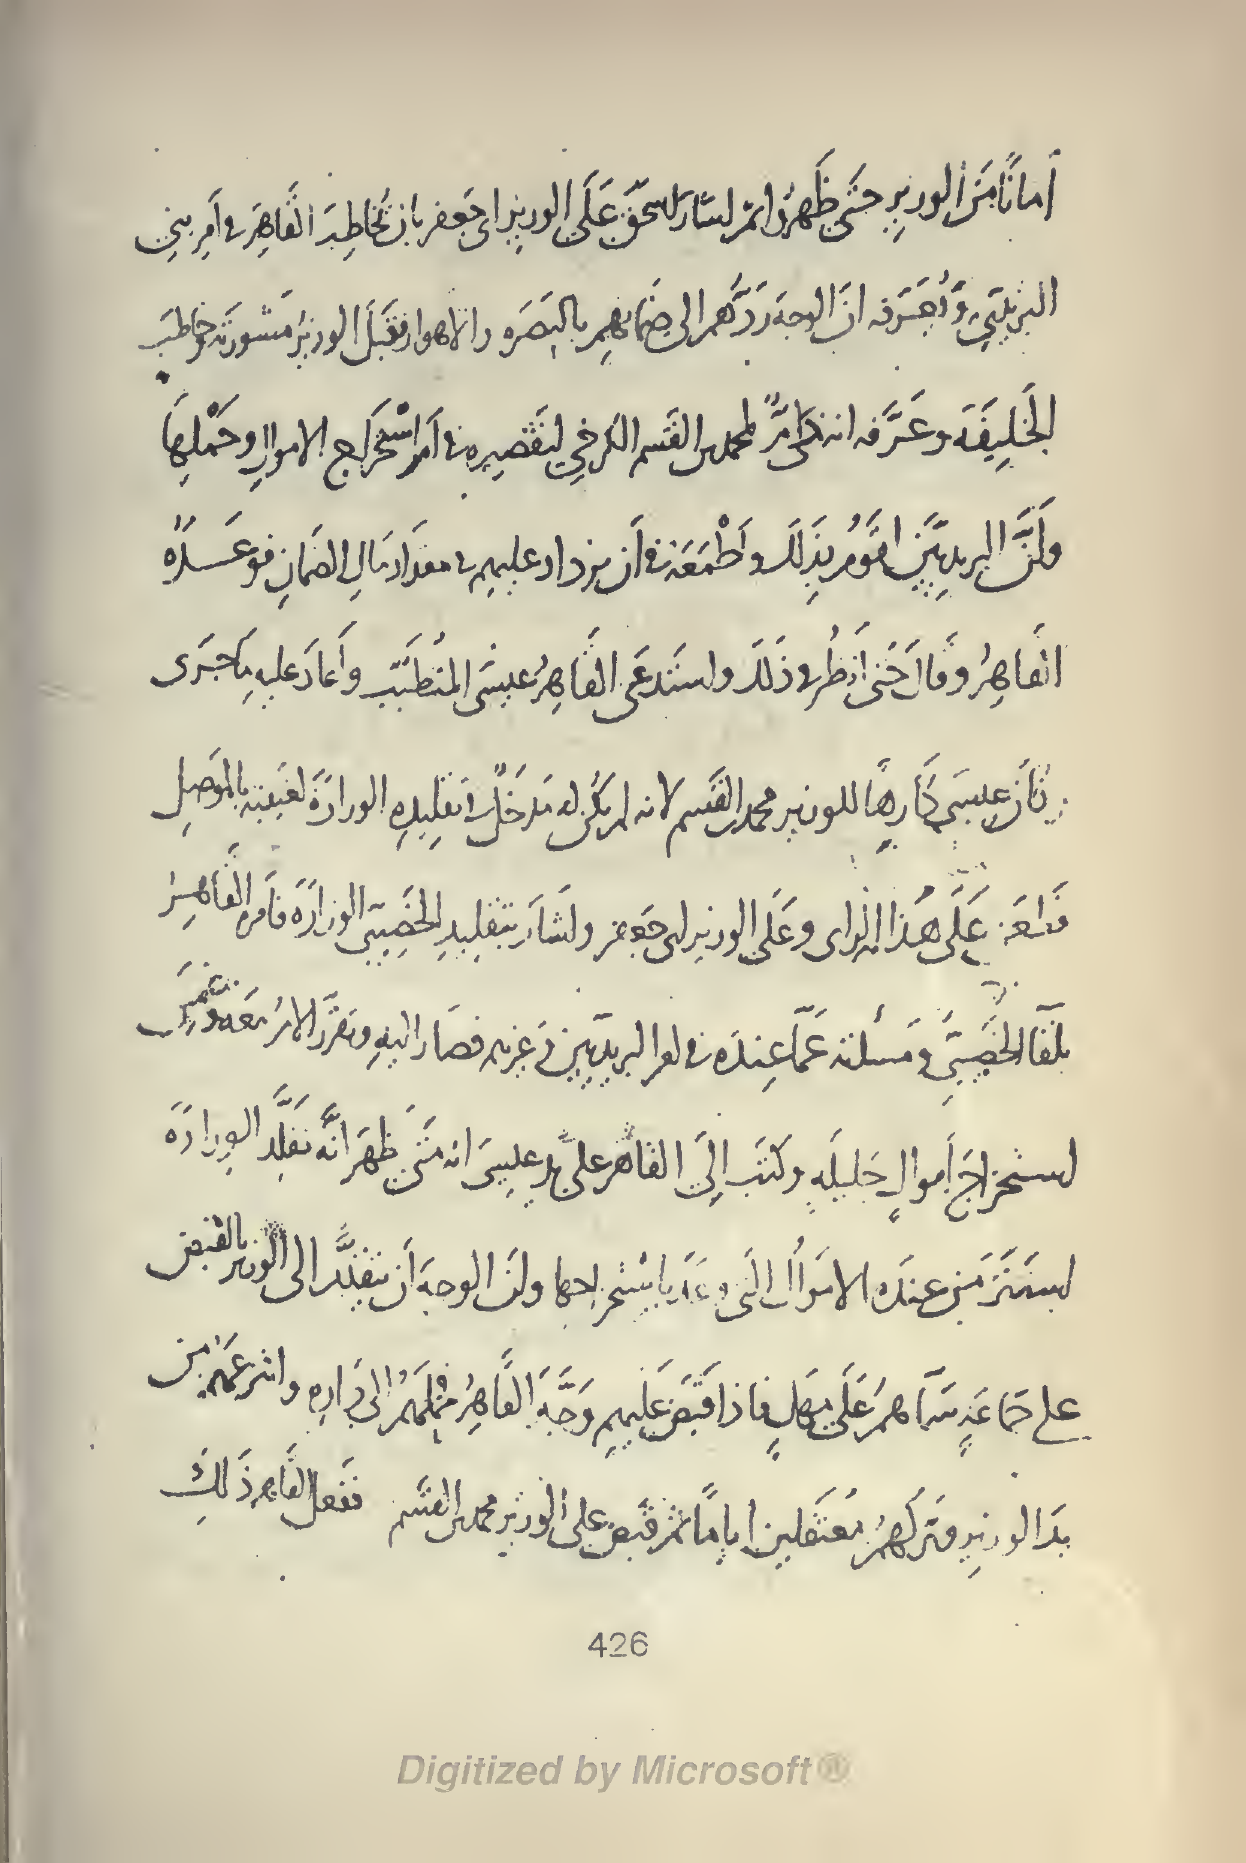 أمانًا مَنَ الوزيرِ حتَّى ظَهرُوا ثم اشار اسحق عَلَى الوزيرِ ابى جَعفر بان يُخَاطِبَ القَاهِرَ فى اَمرِ بنى
البريديّ وَيُعَرّفه انّ الوجهَ رَدَّهم الى ضَمَانهِم بالبَصَره والاهواز فقَبَلَ الوزيرُ مَشورَتَه وخاطبَ
الخَلِيفَةَ وعَرَّفه انه لمحمد بن القَسم الكرخي لتقصيره فى اَمر اسْتخرَاج الاموالِ وحَمْلِهَا
ولنَّ البريديّين اقوَمُ بذَلكَ واَطْمَعَه فى اَن يزداد عليهم فى مقدَار مَالِ الضمانِ فوعَدَه
القَاهِرُ وقالَ حَتى اَنظُر فى ذَلكَ واستَدعَى القَاهِرُ عيسَى المتطبّب وأعَادَ عليهِ مَا جَرَى
وكَانَ عيسَى كَارِهًا للوزير محمد بن القَسم لانه لم يكُن له مَدخَلٌ فى تقلِيدِه الوزارَةَ لغيبَته بالموَصِل
عَلَى هَذا الراى وعَلَى الوزير ابى جَعفر واشَارَ بتقليدِ الخَصِيبى الوزَارَة فامره القَاهِرُ
بلقَا الخَصِيبيّ فى مَسئلته عَمّا عِندَه فى امر البريديّين فى غيرهم فصَار اليهِ وتقرَّر الامرُ مَعَه
استخراجَ أموالٍ جَليلَهٍ وكتبَ إلَى القاهر على يدِ عيسَى انه متَى ظهَرَ انَّه تقلَّد الوِزارَةَ
استَتَرَ مَن عندَه الامَوالُ التَى وعَدَ باسْتخراجها ولنَ الوجهَ أن يتقدَّم الى الوزير بالقبض
على جَمَاعَةٍ سَمّاهم عَلَى مَهَلٍ فاذا قَبَضَ عَليهم وَجَّهَ القَاهِرُ الى دَارِهِ وانتزعَهُم من
يدَ الوزيرِ وتَركَهمُ مُعتَقَلين ايامًا ثم قبَض على الوزير محمد بن القَسم ففَعل القَاهِر ذَلكَ
426
Digitized by Microsoft®